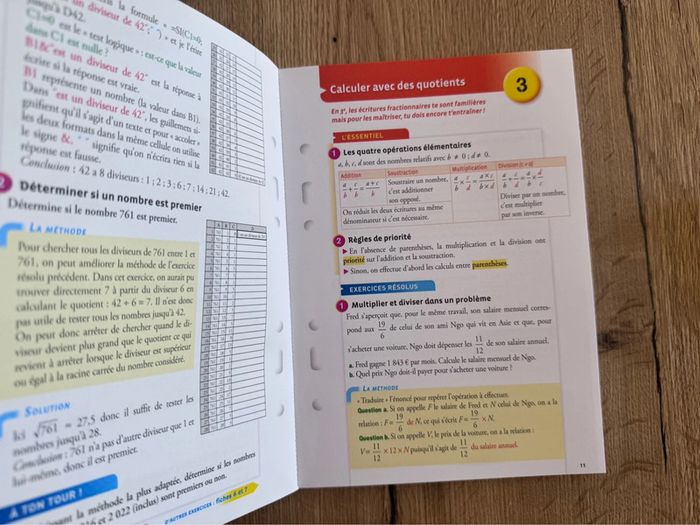 la formule « =SI(C1=0;
un diviseur de 42";" ") » et je l'étire
jusqu'à D42.
C1=0 est le « test logique » : est-ce que la valeur
dans C1 est nulle ?
B1&"est un diviseur de 42" est la réponse à
écrire si la réponse est vraie.
B1 représente un nombre (la valeur dans B1).
Dans "est un diviseur de 42", les guillemets si-
gnifient qu'il s'agit d'un texte et pour « accoler »
les deux formats dans la même cellule on utilise
le signe &. " " signifie qu'on n'écrira rien si la
réponse est fausse.
Conclusion : 42 a 8 diviseurs : 1 ; 2 ; 3 ; 6 ; 7 ; 14 ; 21 ; 42.
2 Déterminer si un nombre est premier
Détermine si le nombre 761 est premier.
LA MÉTHODE
Pour chercher tous les diviseurs de 761 entre 1 et
761, on peut améliorer la méthode de l'exercice
résolu précédent. Dans cet exercice, on aurait pu
trouver directement 7 à partir du diviseur 6 en
calculant le quotient : 42 ÷ 6 = 7. Il n'est donc
pas utile de tester tous les nombres jusqu'à 42.
On peut donc arrêter de chercher quand le di-
viseur devient plus grand que le quotient ce qui
revient à arrêter lorsque le diviseur est supérieur
ou égal à la racine carrée du nombre considéré.
SOLUTION
Ici √761 ≈ 27,5 donc il suffit de tester les
nombres jusqu'à 28.
Conclusion : 761 n'a pas d'autre diviseur que 1 et
lui-même, donc il est premier.
À TON TOUR !
la méthode la plus adaptée, détermine si les nombres
et 2 022 (inclus) sont premiers ou non.
D'AUTRES EXERCICES : fiches 6 et 7
Calculer avec des quotients
3
En 3e, les écritures fractionnaires te sont familières
mais pour les maîtriser, tu dois encore t'entraîner !
L'ESSENTIEL
1 Les quatre opérations élémentaires
a, b, c, d sont des nombres relatifs avec b ≠ 0 ; d ≠ 0.
Addition Soustraction Multiplication Division (c ≠ 0)
a/b + c/b = (a + c)/b
Soustraire un nombre,
c'est additionner
son opposé.
a/b × c/d = (a × c)/(b × d)
a/b ÷ c/d = a/b × d/c
Diviser par un nombre,
c'est multiplier
par son inverse.
On réduit les deux écritures au même
dénominateur si c'est nécessaire.
2 Règles de priorité
► En l'absence de parenthèses, la multiplication et la division ont
priorité sur l'addition et la soustraction.
► Sinon, on effectue d'abord les calculs entre parenthèses.
EXERCICES RÉSOLUS
1 Multiplier et diviser dans un problème
Fred s'aperçoit que, pour le même travail, son salaire mensuel corres-
pond aux 19/6 de celui de son ami Ngo qui vit en Asie et que, pour
s'acheter une voiture, Ngo doit dépenser les 11/12 de son salaire annuel.
a. Fred gagne 1 843 € par mois. Calcule le salaire mensuel de Ngo.
b. Quel prix Ngo doit-il payer pour s'acheter une voiture ?
LA MÉTHODE
« Traduire » l'énoncé pour repérer l'opération à effectuer.
Question a. Si on appelle F le salaire de Fred et N celui de Ngo, on a la
relation : F = 19/6 de N, ce qui s'écrit F = 19/6 × N.
Question b. Si on appelle V, le prix de la voiture, on a la relation :
V = 11/12 × 12 × N puisqu'il s'agit de 11/12 du salaire annuel.
11